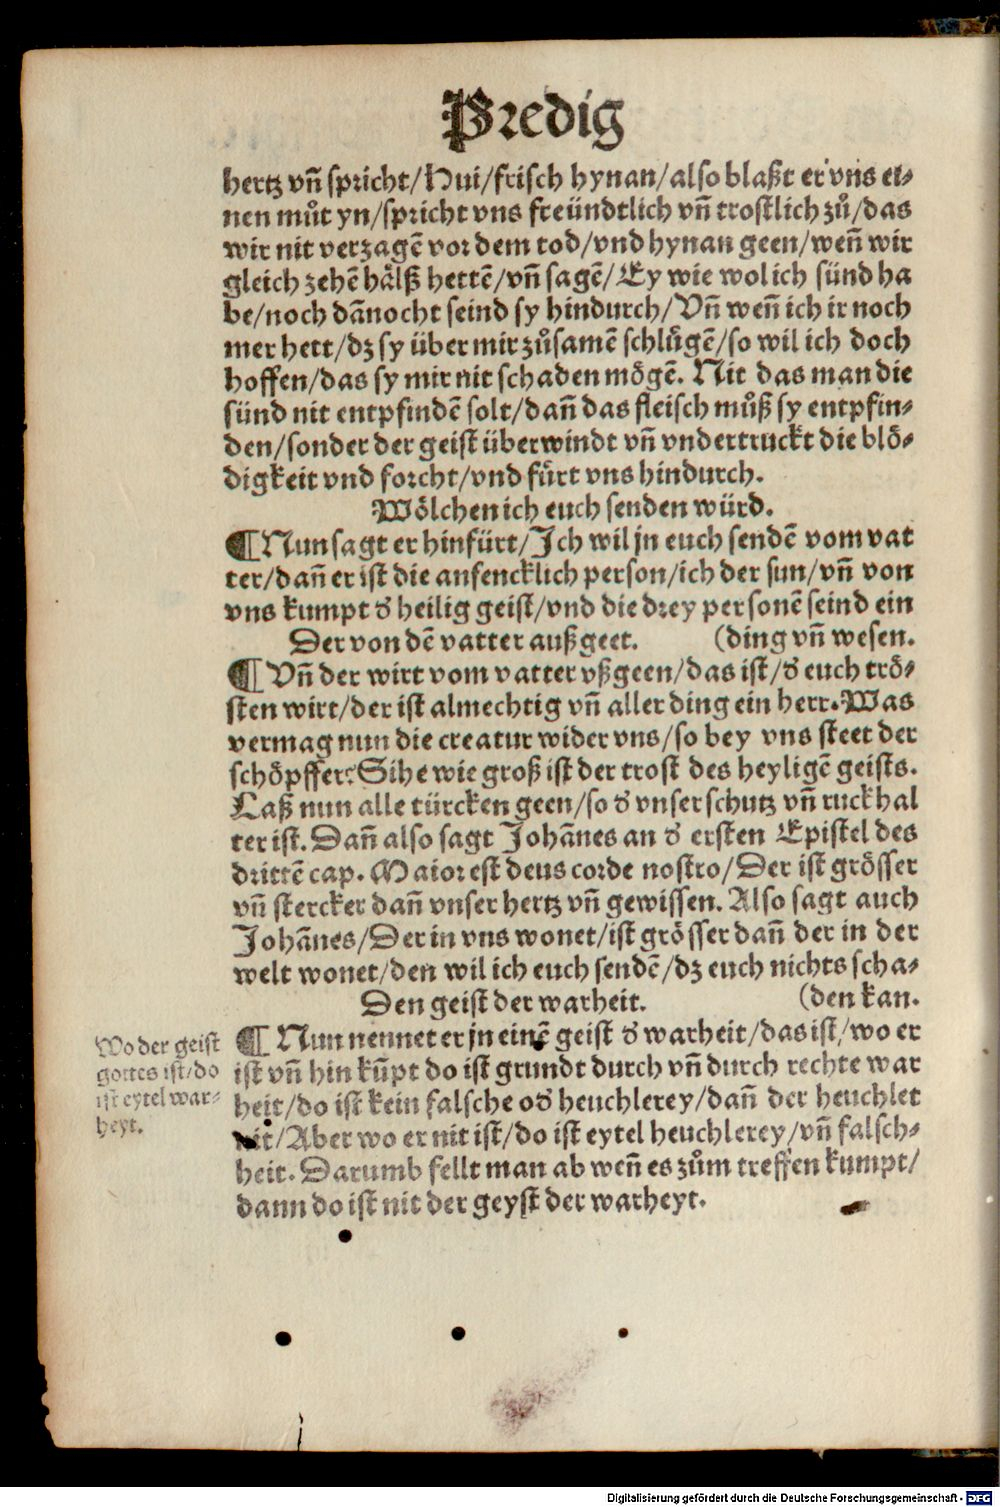 Predig
hertz vñ spricht/Hui/frisch hynan/also blaßt er vns ei⸗
nen můt yn/spricht vns freündtlich vñ trostlich zů/das
wir nit verzagẽ vor dem tod/vnd hynan geen/weñ wir
gleich zehẽ hälß hettẽ/vñ sagẽ/Ey wie wol ich sünd ha
be/noch dãnocht seind sy hindurch/Vñ weñ ich ir noch
mer hett/dz sy über mir zůsamẽ schlůgẽ/so wil ich doch
hoffen/das sy mir nit schaden mögẽ. Nit das man die
sünd nit entpfindẽ solt/dañ das fleisch můß sy entpfin⸗
den/sonder der geist überwindt vñ vndertruckt die blö⸗
digkeit vnd forcht/vnd fürt vns hindurch.
Wölchen ich euch senden würd.
¶ Nun sagt er hinfürt/Ich wil jn euch sendẽ vom vat
ter/dañ er ist die anfencklich person/ich der sun/vñ von
vns kumpt ď heilig geist/vnd die drey personẽ seind ein
Der von dẽ vatter außgeet. (ding vñ wesen.
¶ Vñ der wirt vom vatter vßgeen/das ist/ď euch trö⸗
sten wirt/der ist almechtig vñ aller ding ein herr. Was
vermag nun die creatur wider vns/so bey vns steet der
schöpffer? Sihe wie groß ist der trost des heyligẽ geists.
Laß nun alle türcken geen/so ď vnser schutz vñ ruckhal
ter ist. Dañ also sagt Johãnes an ď ersten Epistel des
drittẽ cap. Maior est deus corde nostro/Der ist grösser
vñ stercker dañ vnser hertz vñ gewissen. Also sagt auch
Johãnes/Der in vns wonet/ist grösser dañ der in der
welt wonet/den wil ich euch sendẽ/dz euch nichts scha⸗
Den geist der warheit. (den kan.
¶ Nun nennet er jn einẽ geist ď warheit/das ist/wo er
ist vñ hin kũpt do ist grundt durch vñ durch rechte war
heit/do ist kein falsche oď heuchlerey/dañ der heuchlet
nit/Aber wo er nit ist/do ist eytel heuchlerey/vñ falsch⸗
heit. Darumb fellt man ab weñ es zům treffen kumpt/
dann do ist nit der geyst der warheyt.
Wo der geist
gottes ist/do
ist eytel war⸗
heyt.
Digitalisierung gefördert durch die Deutsche Forschungsgemeinschaft - DFG